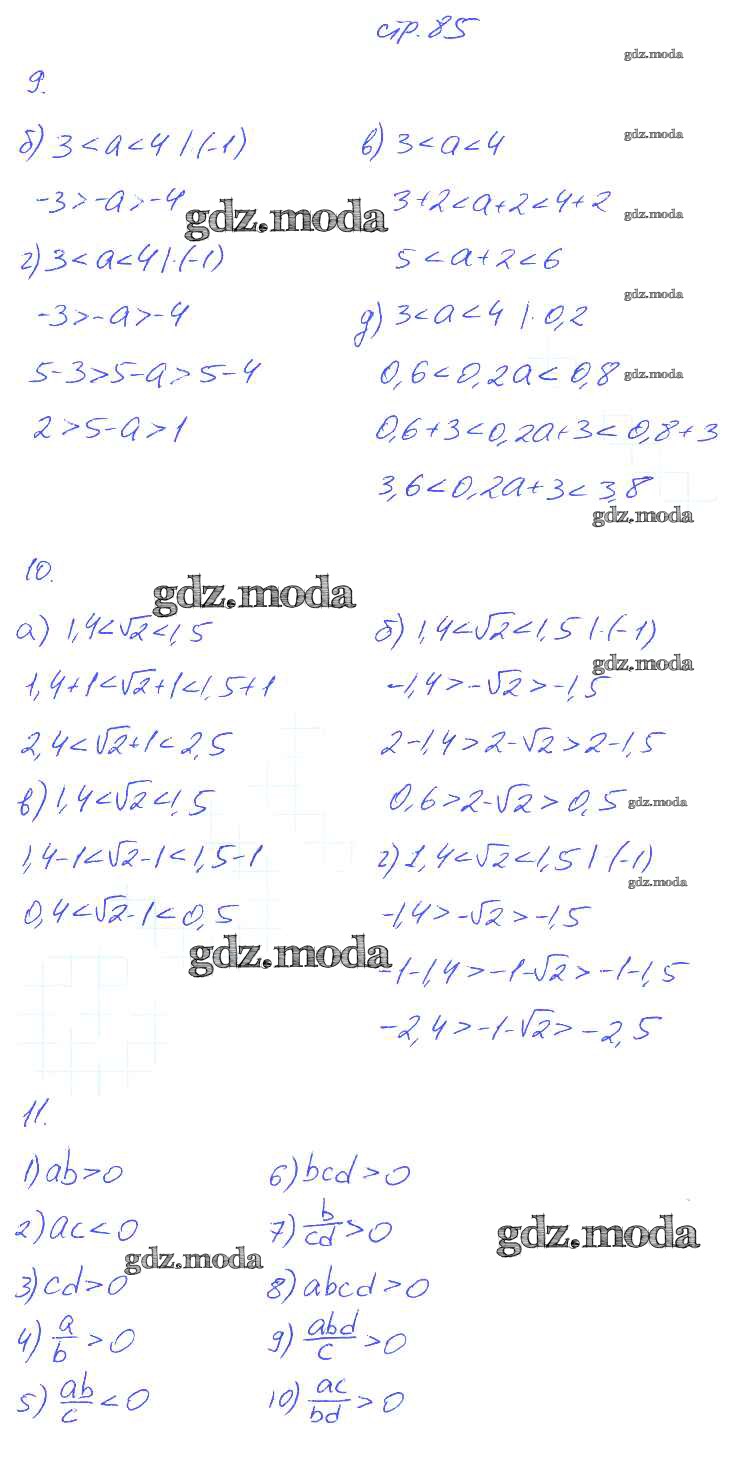 стр. 85
gdz.moda
9.
б) 3 < a < 4 | (-1)
-3 > -a > -4
г) 3 < a < 4 | · (-1)
-3 > -a > -4
5 - 3 > 5 - a > 5 - 4
2 > 5 - a > 1
gdz.moda
в) 3 < a < 4
gdz.moda
3 + 2 < a + 2 < 4 + 2
gdz.moda
5 < a + 2 < 6
gdz.moda
д) 3 < a < 4 | · 0,2
0,6 < 0,2a < 0,8
gdz.moda
0,6 + 3 < 0,2a + 3 < 0,8 + 3
3,6 < 0,2a + 3 < 3,8
gdz.moda
10.
gdz.moda
а) 1,4 < √2 < 1,5
1,4 + 1 < √2 + 1 < 1,5 + 1
2,4 < √2 + 1 < 2,5
в) 1,4 < √2 < 1,5
1,4 - 1 < √2 - 1 < 1,5 - 1
0,4 < √2 - 1 < 0,5
gdz.moda
б) 1,4 < √2 < 1,5 | · (-1)
gdz.moda
-1,4 > -√2 > -1,5
2 - 1,4 > 2 - √2 > 2 - 1,5
0,6 > 2 - √2 > 0,5
gdz.moda
г) 1,4 < √2 < 1,5 | (-1)
gdz.moda
-1,4 > -√2 > -1,5
-1 - 1,4 > -1 - √2 > -1 - 1,5
-2,4 > -1 - √2 > -2,5
11.
1) ab > 0
2) ac < 0
gdz.moda
3) cd > 0
4) a/b > 0
5) ab/c < 0
6) bcd > 0
7) b/cd > 0
8) abcd > 0
9) abd/c > 0
10) ac/bd > 0
gdz.moda